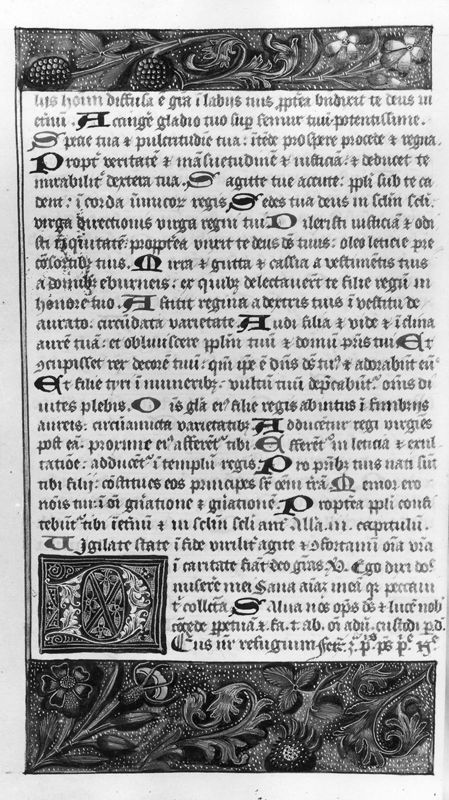 hijs hoim diffusa ē gr̄a ī labiis tuis propt̄ea bndixit te deus in
et̄nū. Accinge gladio tuo sup̄ femur tuū potentissime.
Specie tua & pulcritudine tua: ītēde prospere procede & regna.
Propt̄ veritatē & māsuetudinē & iusticiā: & deducet te
mirabilit̄ dextera tua. Sagitte tue accute: ppl̄i sub te ca
dent: ī corda īimicor regis. Sedes tua deus in sclm̄ scl̄i:
virga directionis virga regni tui. Dilexisti iusticiā & odi
sti īiquitatē: propterea vnxit te deus ds̄ tuus: oleo leticie pre
cōsortibꝫ tuis. Mirra & gutta & cassia a vestimentis tuis
a domibꝫ eburneis: ex quibꝫ delectauert̄ te filie regū in
honore tuo. Astitit regina a dextris tuis ī vestitu de
aurato: circūdata varietate. Audi filia & vide & īclina
aurē tuā: et obliuiscere pplm̄ tuū & domū pr̄is tui. Et
ↄcupiscet rex decorē tuū: qm̄ ip̄e ē dn̄s ds̄ tuꝰ & adorabūt eū.
Et filie tyri ī muneribꝫ: vultū tuū dep̄cabūt᷑ omīs di
uites plebis. Ois gl̄a eiꝰ filie regis abintus ī fimbriis
aureis: circūamicta varietatibꝫ. Adducētur regi virgīes
post eā: proxime eiꝰ afferēt᷑ tibi. Efferēt᷑ in leticia & exul
tatiōe: adducēt᷑ ī templū regis. Pro pr̄ibꝫ tuis nati sūt
tibi filii: cōstitues eos principes sr̄ oēm tr̄ā. Memor ero
nois tui: ī oī gn̄atione & gn̄ationē. Propterea ppl̄i confi
tebūt᷑ tibi īet̄nū & in sclm̄ scl̄i. ant̄ Alla. iii. capitulū.
Vigilate state ī fide virilit̄ agite & ↄfortamini oīa vr̄a
ī caritate fiāt deo gr̄as V̄. Ego dixi dn̄e
miserere mei Sana aīaꝫ meā qꝫ peccaui
t̄ collc̄ta. Salua nos oīps ds̄ & lucē nob̄
cōcede perpetuā & fa. t. ab. oī adūi. custodi p̄ d̄.